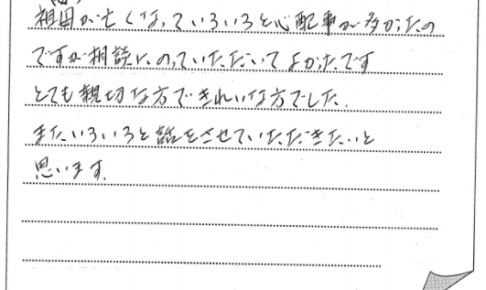 祖母が亡くなっていろいろと心配事が多かったの
ですが相談にのっていただいてよかったです
とても親切な方できれいな方でした.
またいろいろと話をさせていただきたいと
思います.